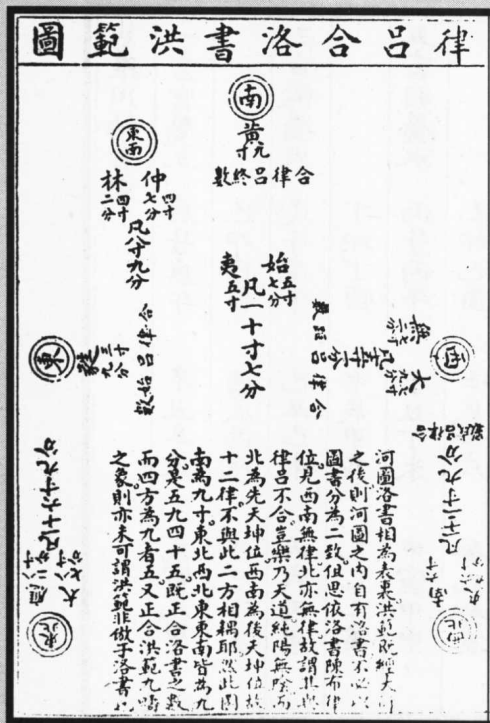 律呂合洛書洪範圖
南
黃九寸
合律呂終數
東南
仲四寸七分
林四寸二分
凡八寸九分
始五寸七分
夷五寸
凡一十寸七分
合律呂
東
合律呂始數
合律呂
東北
西北
河圖洛書相為表裏洪範既經大
之後則河圖之內自有洛書不必以
圖書分為二致但思依洛書陳布律
位見西南無律北亦無律故謂其與
律呂不合豈樂乃天道純陽無陰而
北為先天坤位西南為後天坤位故
十二律不與此二方相耦耶然此圖
南為九寸東北西北東東南皆為九
分是五九四十五既正合洛書之數
而四方為九者五又正合洪範九疇
之象則亦未可謂洪範非倣于洛書也